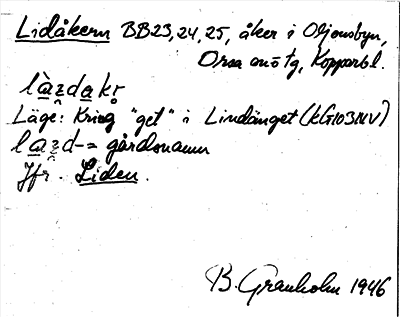 Lidåkern BB23,24,25, åker i Oljonsbyn,
Orsa sn o tg, Kopparbl.
là̱z̯da̱kr̥
Läge: Kring "get" i Lindänget (KG103NV)
la̱z̯d- = gårdsnamn
Jfr. Liden.
B. Granholm 1946